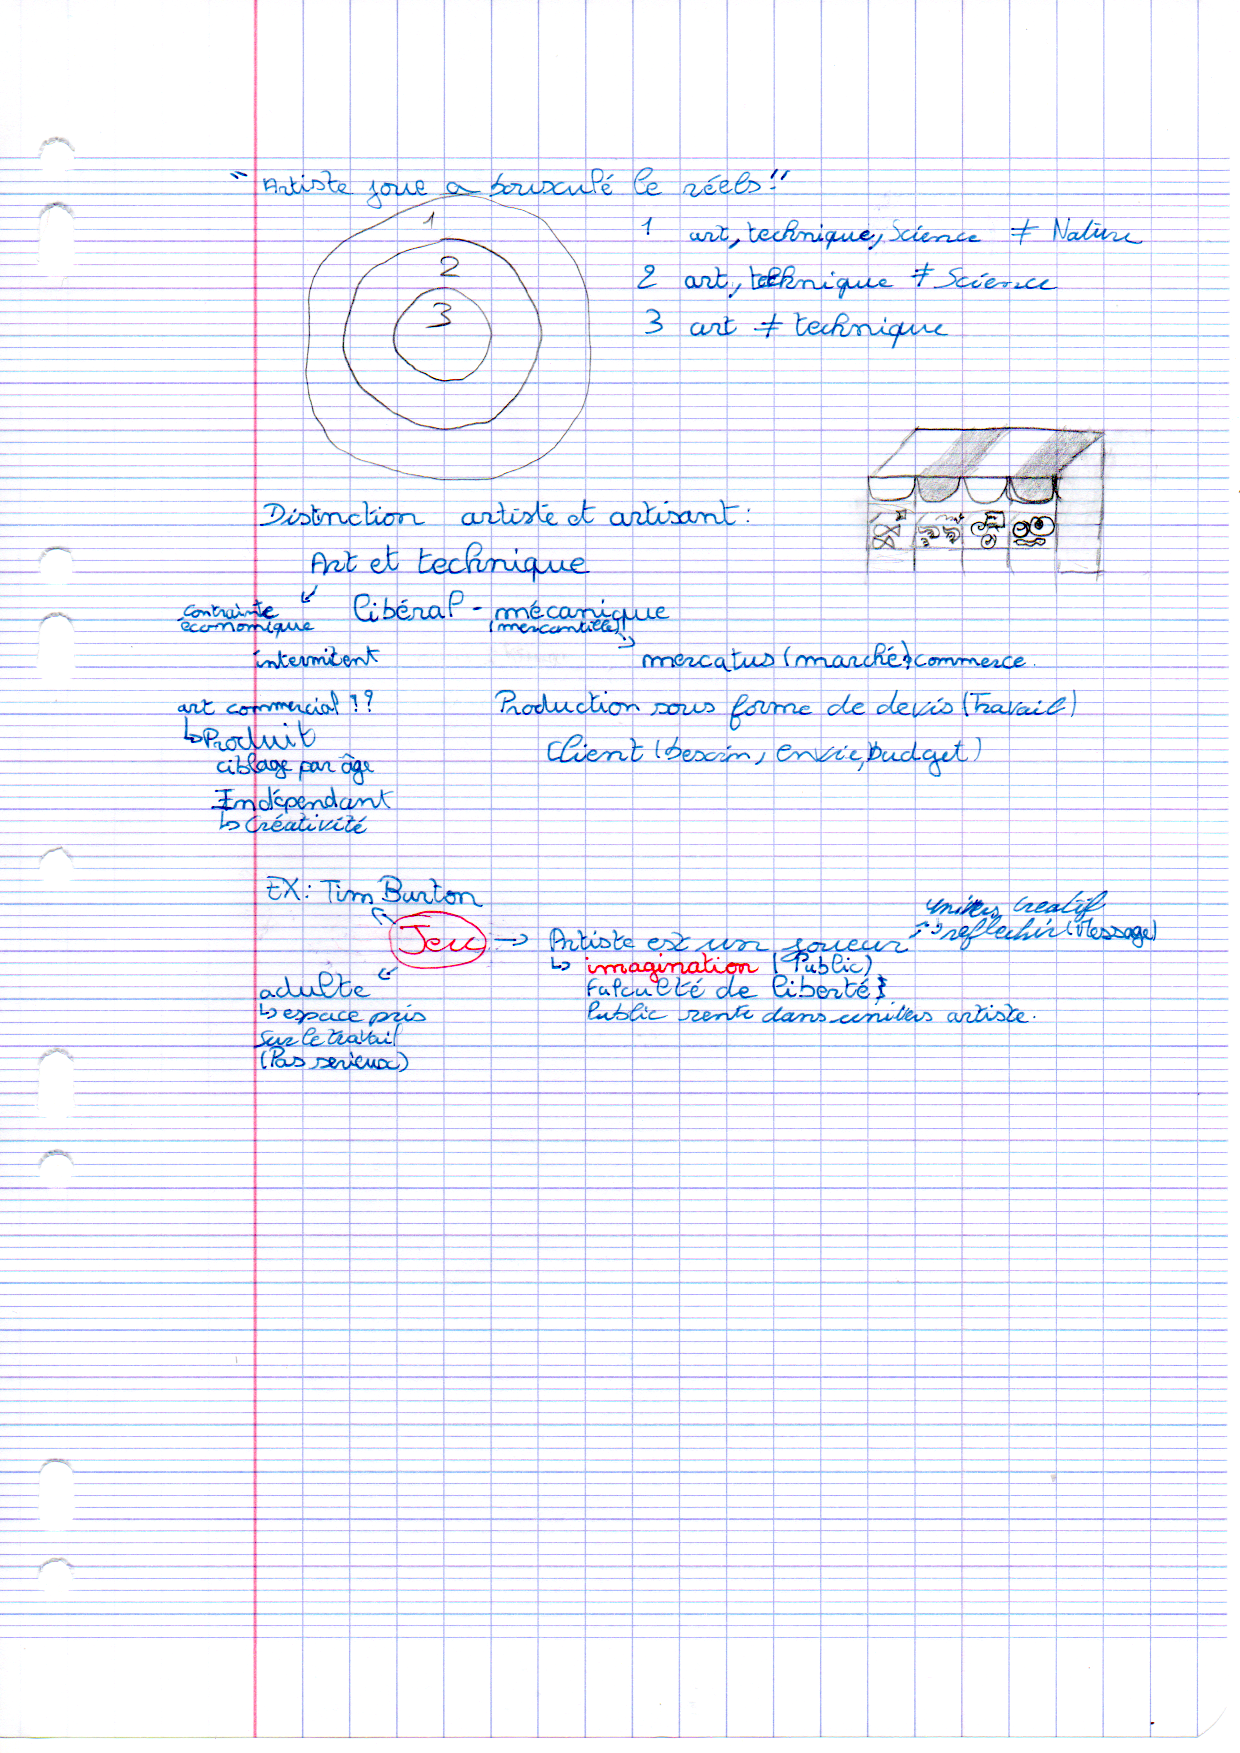 " Artiste joue a bousculé le réels!"
1
2
3
1 art, technique, Science ≠ Nature
2 art, technique ≠ Science
3 art ≠ technique
Distinction artiste et artisant :
Art et technique
↙
contrainte
économique
libéral - mécanique
(mercantille)
intermitent
↘ mercatus (marché) commerce.
art commercial !?
↳ Produit
ciblage par âge
Indépendant
↳ Créativité
Production sous forme de devis (Travail)
Client (besoin, envie, budget)
EX: Tim Burton
Jeu → Artiste est un joueur
univers creatif
reflechir (Message)
↳ imagination (Public)
Falculté de liberté
Public rente dans univers artiste.
adulte
↳ espace pris
sur le travail
(Pas serieux)